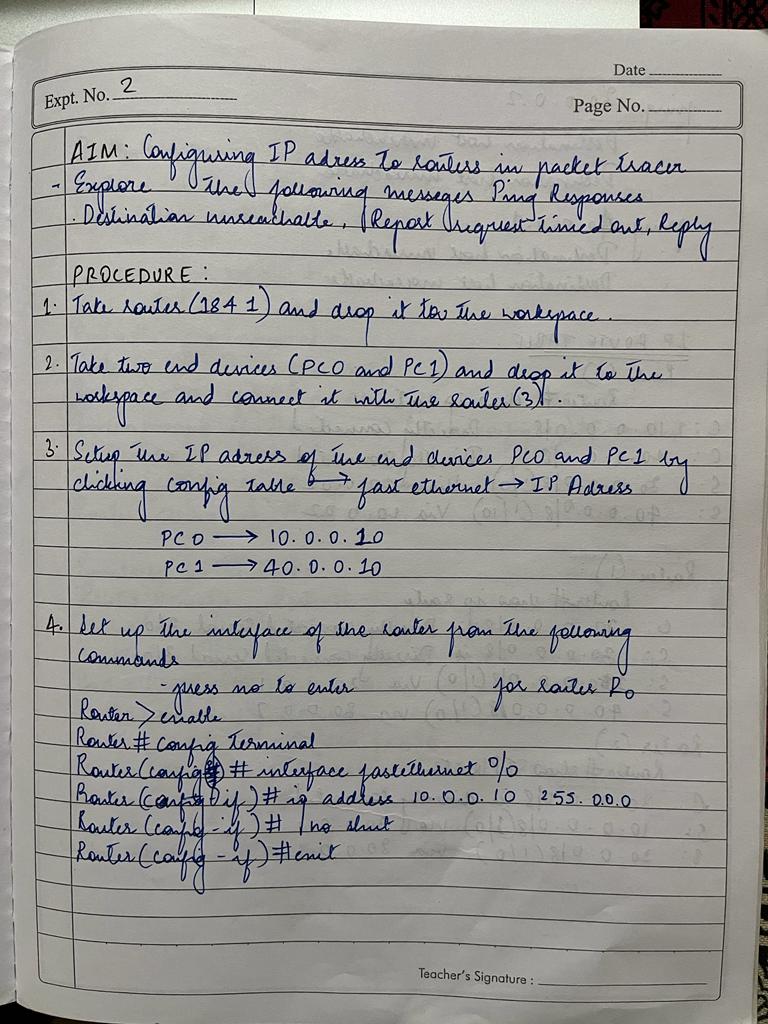 Date
Expt. No. 2
Page No.
AIM: Configuring IP adress to routers in packet tracer
- Explore the following messeges Ping Responses
. Destination unreachable, Report request timed out, Reply
PROCEDURE:
1. Take router (1841) and drop it to the workspace.
2. Take two end devices (PC0 and PC1) and drop it to the
workspace and connect it with the router (3).
3. Setup the IP adress of the end devices PC0 and PC1 by
clicking config table → fast ethernet → IP Adress
PC0 → 10.0.0.10
PC1 → 40.0.0.10
4. Set up the interface of the router from the following
commands
- press no to enter for router R0
Router>enable
Router# config Terminal
Router(config)# interface fastethernet 0/0
Router (config-if)# ip address 10.0.0.10 255.0.0.0
Router (config-if)# no shut
Router (config-if)#exit
Teacher's Signature :